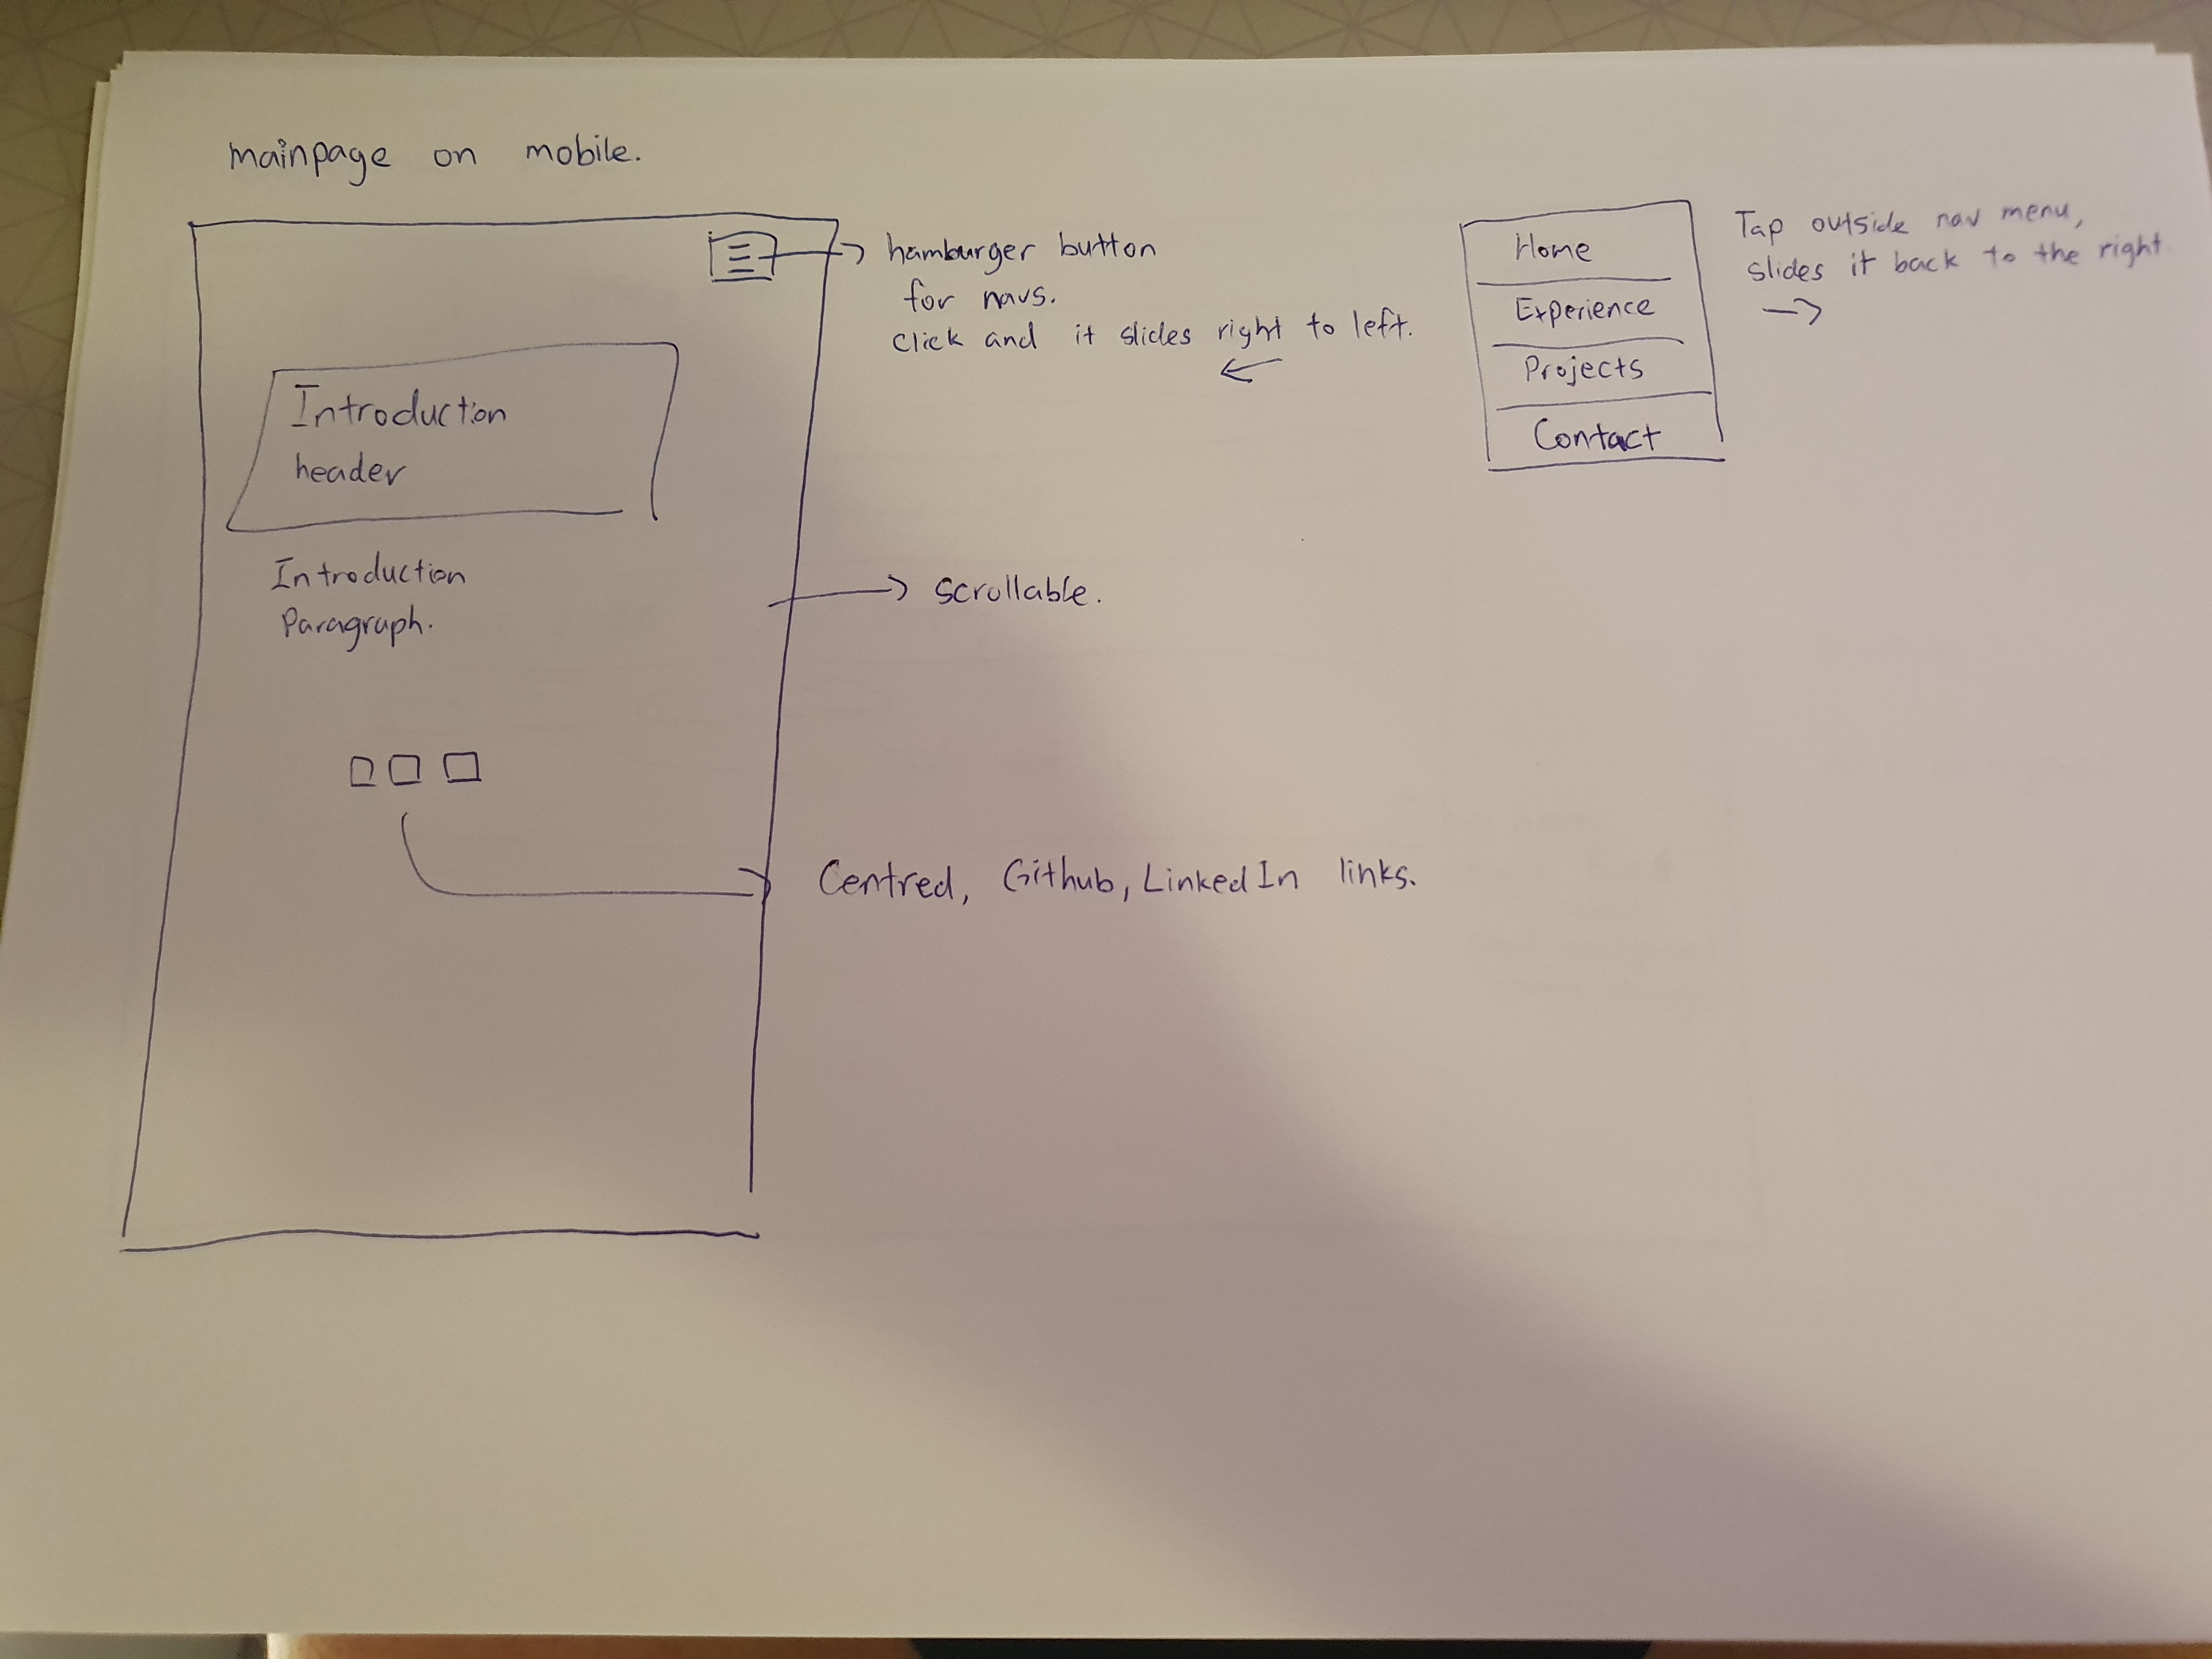 mainpage on mobile.
hamburger button
for navs.
click and it slides right to left.
Home
Experience
Projects
Contact
Tap outside nav menu,
slides it back to the right
Introduction
header
Introduction
Paragraph.
scrollable.
Centred, Github, LinkedIn links.